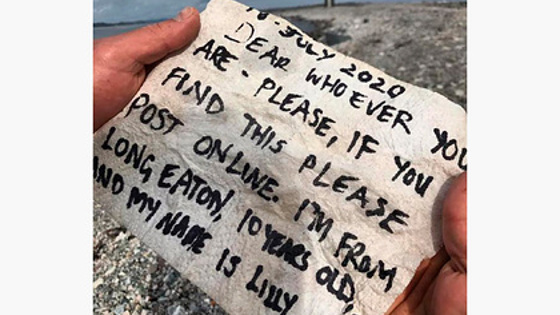 JULY 2020
DEAR WHOEVER YOU
ARE - PLEASE, IF YOU
FIND THIS PLEASE
POST ONLINE. I'M FROM
LONG EATON, 10 YEARS OLD,
AND MY NAME IS LILLY